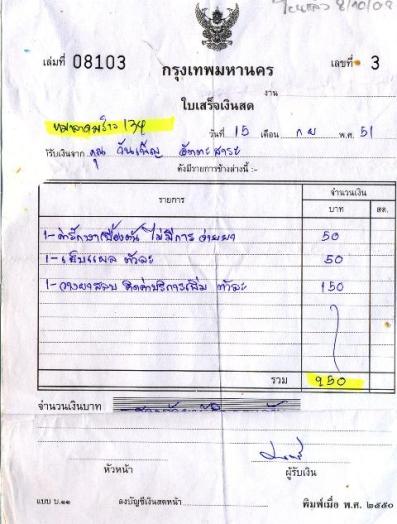 โอนแล้ว 8/10/08
เล่มที่ 08103
กรุงเทพมหานคร
เลขที่ 3
งาน
ใบเสร็จเงินสด
วันที่ 15 เดือน ก.ย พ.ศ. 51
ได้รับเงินจาก คุณ วันเพ็ญ
ดังมีรายการข้างล่างนี้ :-
รายการ จำนวนเงิน
บาท สต.
1- ค่ารักษาเบื้องต้น ไม่มีการจ่ายยา 50
1- เย็บแผล ตัวละ 50
1- วางยาสลบ คิดค่าบริการเพิ่ม ตัวละ 150
รวม 250
จำนวนเงินบาท
หัวหน้า ผู้รับเงิน
แบบ บ.๑๑ ลงบัญชีเงินสดหน้า พิมพ์เมื่อ พ.ศ. ๒๕๕๐